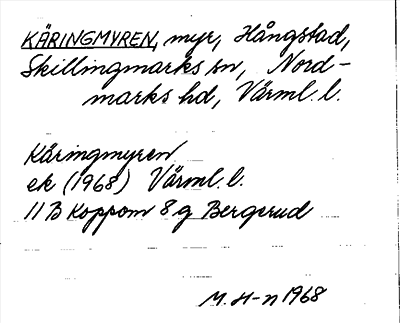 KÄRINGMYREN, myr, Hångstad,
Skillingmarks sn, Nord-
marks hd, Värml. l.
Käringmyren
ek (1968) Värml. l.
11 B Koppom 8 g Bergerud
M. H-n 1968